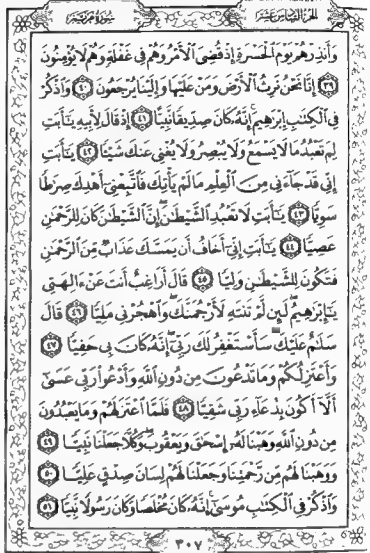 سُورَةُ مَرْيَمَ
الجُزْءُ السَّادِسَ عَشَرَ
وَأَنذِرْهُمْ يَوْمَ ٱلْحَسْرَةِ إِذْ قُضِىَ ٱلْأَمْرُ وَهُمْ فِى غَفْلَةٍ وَهُمْ لَا يُؤْمِنُونَ
٣٩ إِنَّا نَحْنُ نَرِثُ ٱلْأَرْضَ وَمَنْ عَلَيْهَا وَإِلَيْنَا يُرْجَعُونَ ٤٠ وَٱذْكُرْ
فِى ٱلْكِتَٰبِ إِبْرَٰهِيمَ ۚ إِنَّهُۥ كَانَ صِدِّيقًا نَّبِيًّا ٤١ إِذْ قَالَ لِأَبِيهِ يَٰٓأَبَتِ
لِمَ تَعْبُدُ مَا لَا يَسْمَعُ وَلَا يُبْصِرُ وَلَا يُغْنِى عَنكَ شَيْـًٔا ٤٢ يَٰٓأَبَتِ
إِنِّى قَدْ جَآءَنِى مِنَ ٱلْعِلْمِ مَا لَمْ يَأْتِكَ فَٱتَّبِعْنِىٓ أَهْدِكَ صِرَٰطًا
سَوِيًّا ٤٣ يَٰٓأَبَتِ لَا تَعْبُدِ ٱلشَّيْطَٰنَ ۖ إِنَّ ٱلشَّيْطَٰنَ كَانَ لِلرَّحْمَٰنِ
عَصِيًّا ٤٤ يَٰٓأَبَتِ إِنِّىٓ أَخَافُ أَن يَمَسَّكَ عَذَابٌ مِّنَ ٱلرَّحْمَٰنِ
فَتَكُونَ لِلشَّيْطَٰنِ وَلِيًّا ٤٥ قَالَ أَرَاغِبٌ أَنتَ عَنْ ءَالِهَتِى
يَٰٓإِبْرَٰهِيمُ ۖ لَئِن لَّمْ تَنتَهِ لَأَرْجُمَنَّكَ ۖ وَٱهْجُرْنِى مَلِيًّا ٤٦ قَالَ
سَلَٰمٌ عَلَيْكَ ۖ سَأَسْتَغْفِرُ لَكَ رَبِّىٓ ۖ إِنَّهُۥ كَانَ بِى حَفِيًّا ٤٧
وَأَعْتَزِلُكُمْ وَمَا تَدْعُونَ مِن دُونِ ٱللَّهِ وَأَدْعُوا۟ رَبِّى عَسَىٰٓ
أَلَّآ أَكُونَ بِدُعَآءِ رَبِّى شَقِيًّا ٤٨ فَلَمَّا ٱعْتَزَلَهُمْ وَمَا يَعْبُدُونَ
مِن دُونِ ٱللَّهِ وَهَبْنَا لَهُۥٓ إِسْحَٰقَ وَيَعْقُوبَ ۖ وَكُلًّا جَعَلْنَا نَبِيًّا ٤٩
وَوَهَبْنَا لَهُم مِّن رَّحْمَتِنَا وَجَعَلْنَا لَهُمْ لِسَانَ صِدْقٍ عَلِيًّا ٥٠
وَٱذْكُرْ فِى ٱلْكِتَٰبِ مُوسَىٰٓ ۚ إِنَّهُۥ كَانَ مُخْلَصًا وَكَانَ رَسُولًا نَّبِيًّا ٥١
٣٠٧